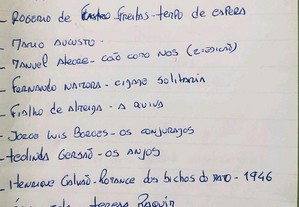 - Rogerio de Freitas - tempo de espera
- Mario Augusto -
- Manuel Alegre - Cão como nós (2ªedição)
- Fernando Namora - cidade solitária
- Fialho de Almeida - a ruiva
- Jorge Luis Borges - os conjurados
- teolinda Gersão - os anjos
- Henrique Galvão - Romance dos bichos do mato - 1946
- teresa Raquin